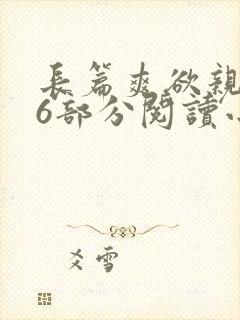 長篇爽欲親
6部分閱讀小
爻雪